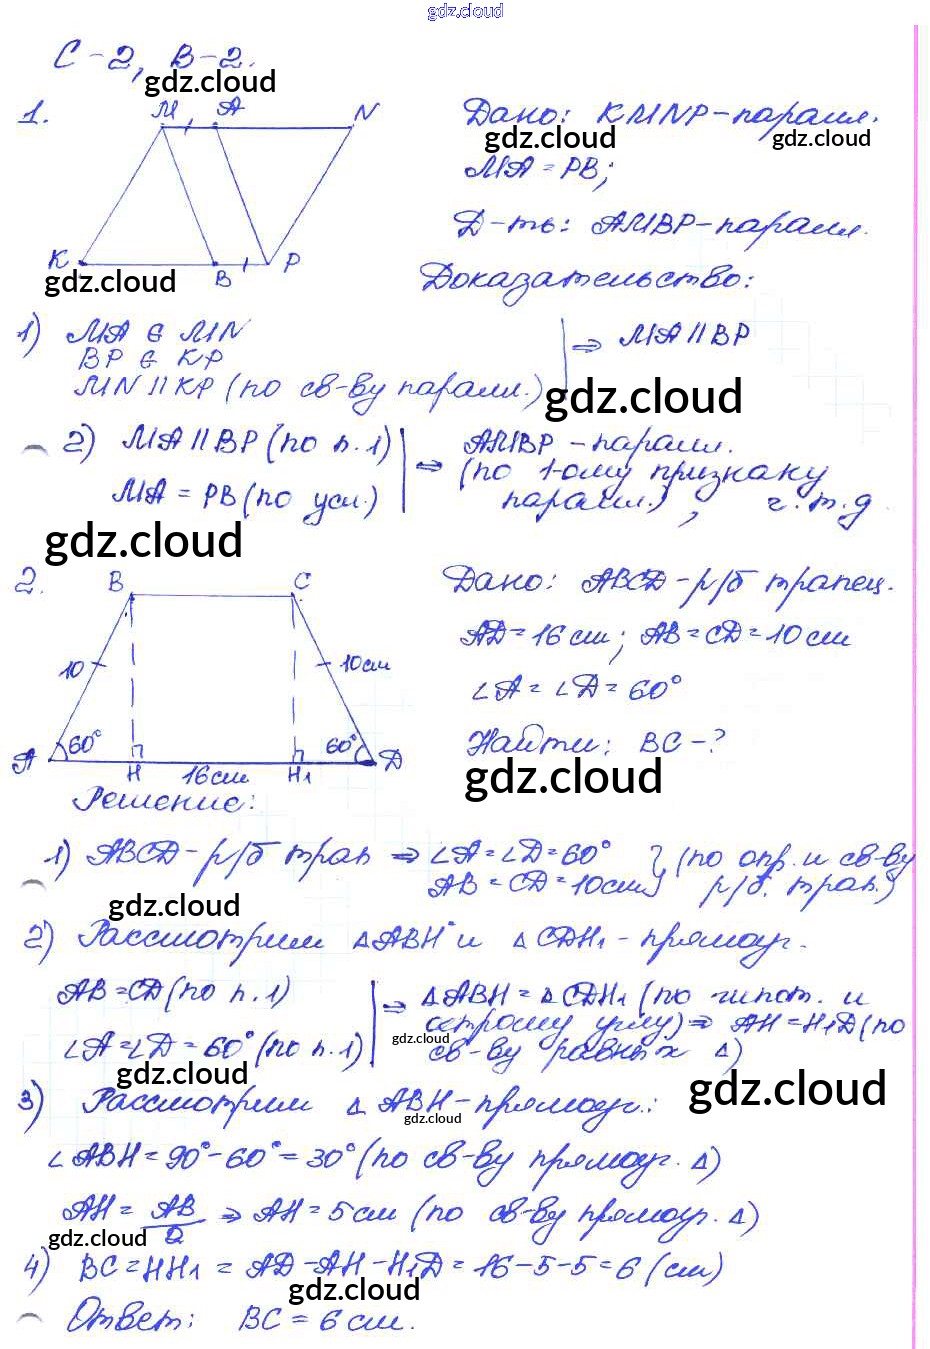 gdz.cloud
С-2, В-2.
gdz.cloud
1.
M A N
K B P
gdz.cloud
Дано: KMNP-паралл.
gdz.cloud gdz.cloud
MA = PB;
Д-ть: AMBP-паралл.
Доказательство:
1) MA ∈ MN
BP ∈ KP
MN || KP (по св-ву паралл.)
⇒ MA || BP
gdz.cloud
2) MA || BP (по п.1)
MA = PB (по усл.)
⇒ AMBP - паралл.
(по 1-ому признаку
паралл.), ч.т.д.
gdz.cloud
2.
B C
10 10см
60° 60°
A H 16см H₁ D
Дано: ABCD-р/б трапец.
AD=16см; AB=CD=10см
∠A = ∠D = 60°
Найти: BC-?
gdz.cloud
Решение:
1) ABCD-р/б трап ⇒ ∠A=∠D=60° } (по опр. и св-ву
AB=CD=10см } р/б. трап.)
gdz.cloud
2) Рассмотрим ΔABH и ΔCDH₁ - прямоуг.
AB=CD (по п.1)
∠A=∠D=60° (по п.1)
⇒ ΔABH = ΔCDH₁ (по гипот. и
острому углу) ⇒ AH=H₁D (по
св-ву равных Δ)
gdz.cloud
gdz.cloud gdz.cloud
3) Рассмотрим ΔABH-прямоуг.:
gdz.cloud
∠ABH=90°-60°=30° (по св-ву прямоуг. Δ)
AH = AB/2 ⇒ AH=5см (по св-ву прямоуг. Δ)
gdz.cloud gdz.cloud
4) BC=HH₁ = AD-AH-H₁D=16-5-5=6 (см)
gdz.cloud
Ответ: BC=6см.